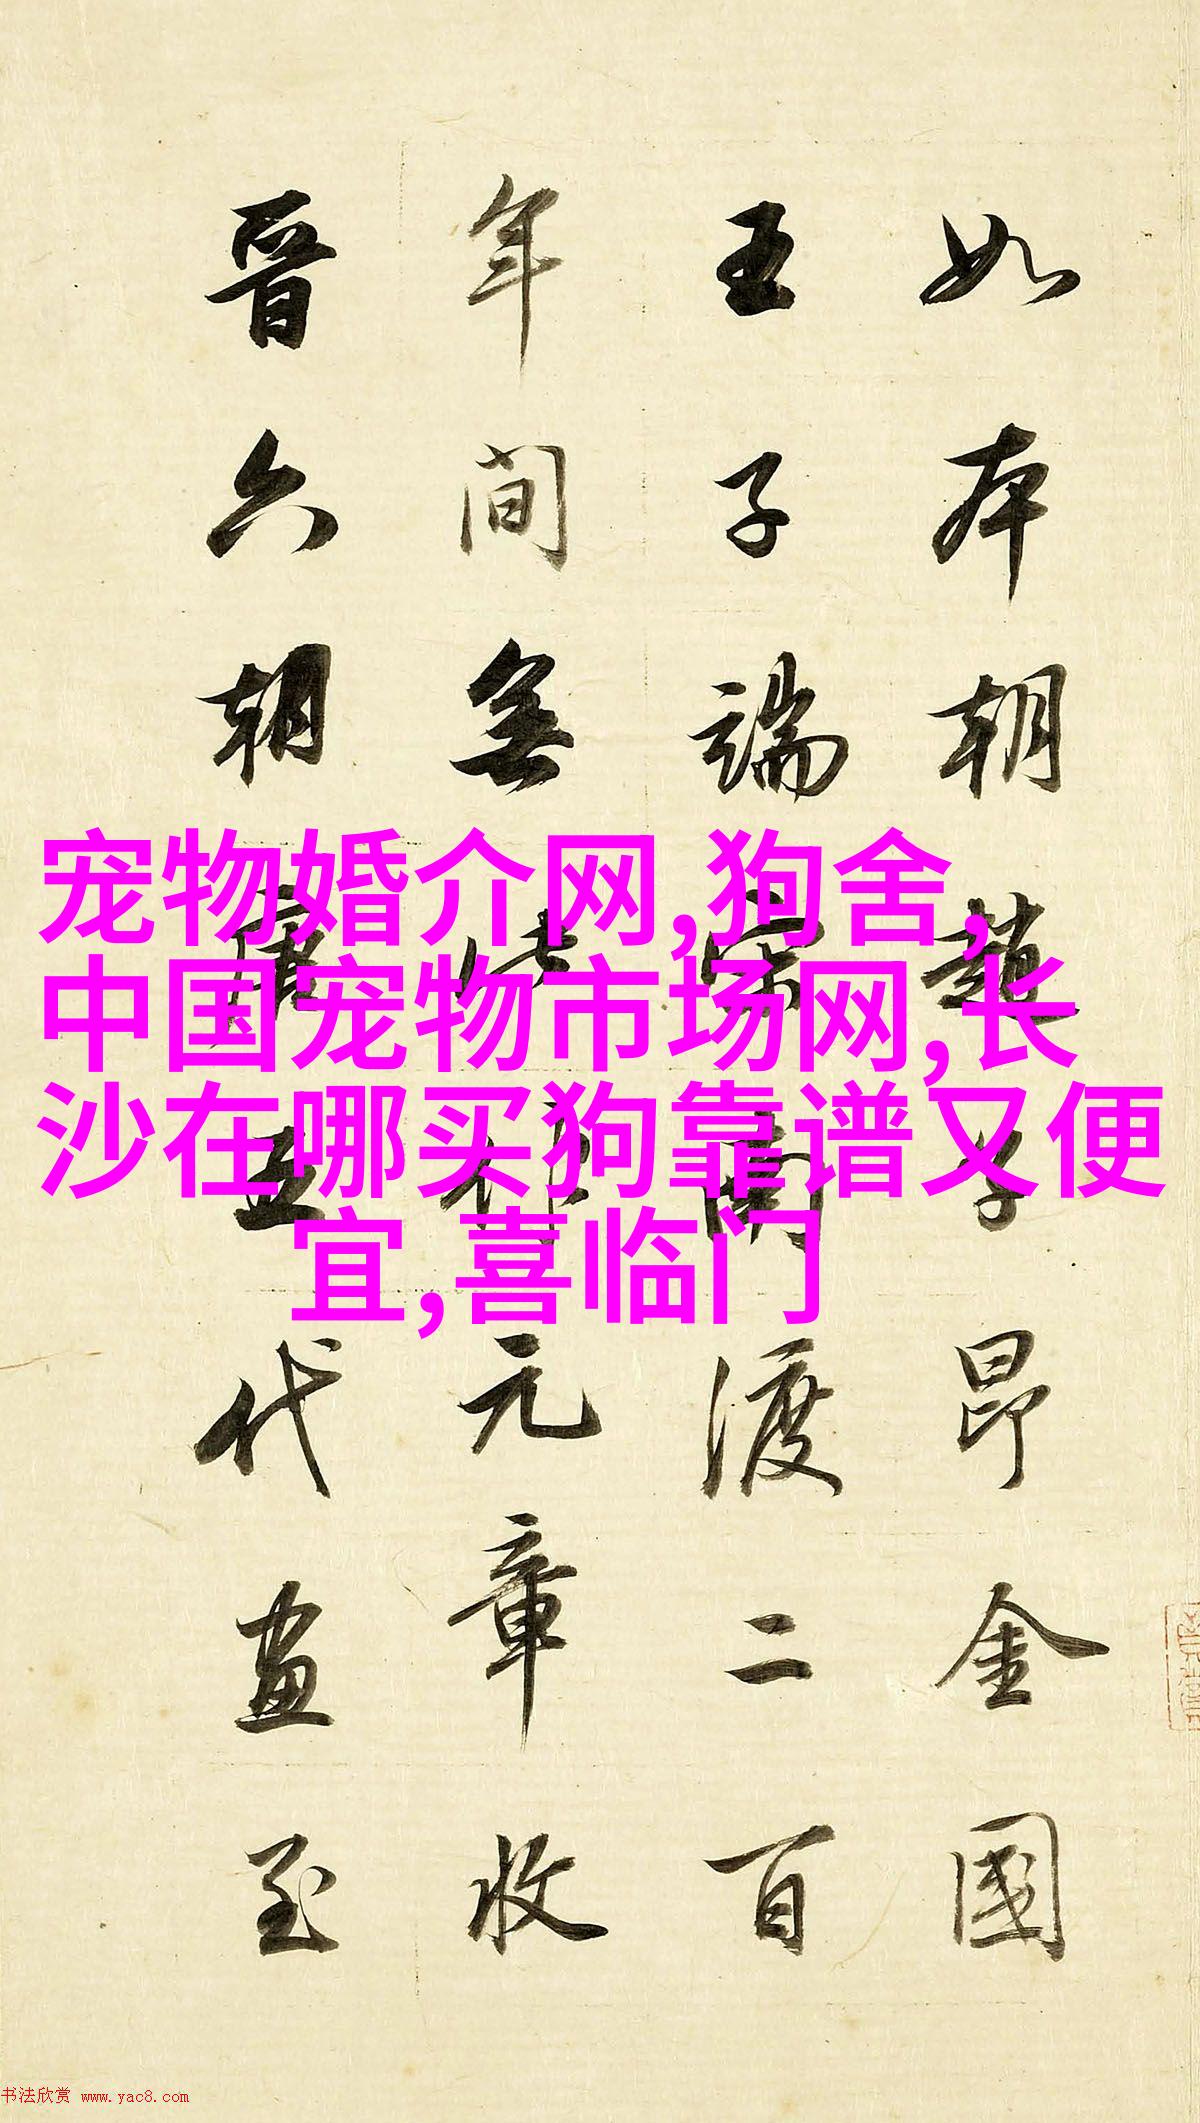 如本朝趙子昂金國
王子端宋南渡二百
年間無此作元章收
晉六朝唐五代畫至
宠物婚介网,狗舍,
中国宠物市场网,长
沙在哪买狗靠谱又便
宜,喜临门
书法欣赏 www.yac8.com